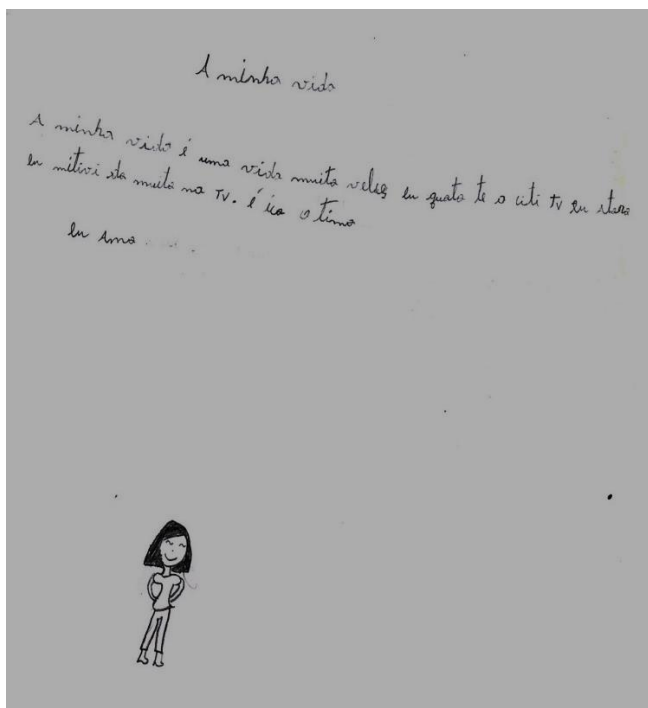 A minha vida
A minha vida é uma vida muito veles eu quato te o citi TV eu stara
eu mitivi sta muito na TV. é iso o timo
eu amo